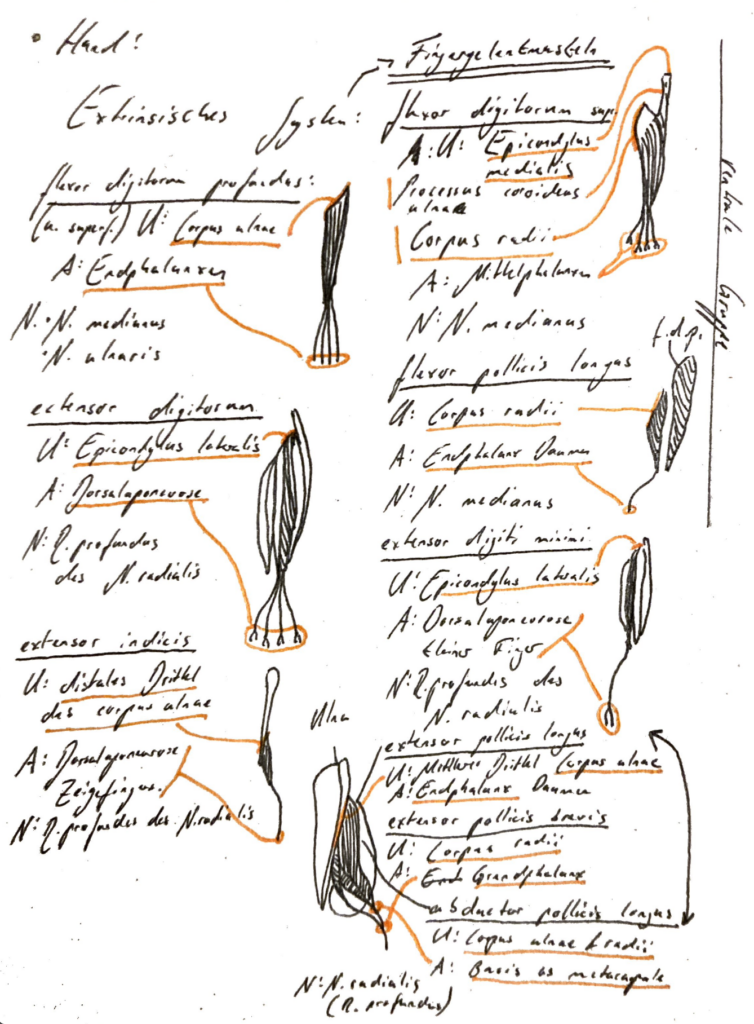 • Hand:
Extrinsisches System: → Fingergelenkmuskeln
flexor digitorum profundus:
(u. superf.) U: Corpus ulnae
A: Endphalanxen
N. • N. medianus
• N. ulnaris
extensor digitorum
U: Epicondylus lateralis
A: Dorsalaponeurose
N: R. profundus
des N. radialis
extensor indicis
U: distales Drittel
des corpus ulnae
A: Dorsalaponeurose
Zeigefinger
N: R. profundus des N. radialis
flexor digitorum sup.
A: U: Epicondylus
medialis
Processus coroideus
ulnae
Corpus radii
A: Mittelphalanxen
N: N. medianus
flexor pollicis longus
f.d.p.
U: Corpus radii
A: Endphalanx Daumen
N: N. medianus
ventrale Gruppe
extensor digiti minimi
U: Epicondylus lateralis
A: Dorsalaponeurose
kleiner Finger
N: R. profundus des
N. radialis
Ulna
extensor pollicis longus
U: Mittleres Drittel Corpus ulnae
A: Endphalanx Daumen
extensor pollicis brevis
U: Corpus radii
A: Grundphalanx
abductor pollicis longus
U: Corpus ulnae & radii
A: Basis os metacarpale
N: N. radialis
(R. profundus)